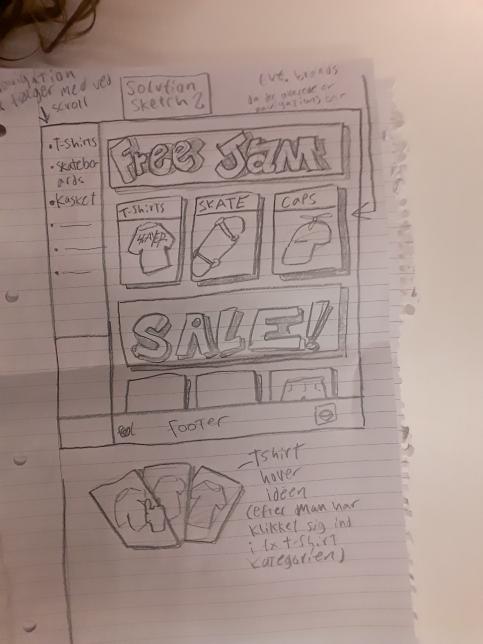 følger med ved
scroll
Solution
Sketch 2
• T-shirts
• skatebo-
ards
• Kasket
Free Jam
T-shirts
SKATE
CAPS
SLAYER
SALE!
FOOTER
Tshirt
hover
ideen
(efter man har
klikket sig ind
i fx t-shirt
kategorien)